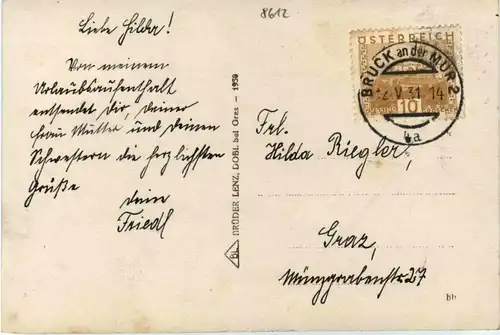 8612
Liebe Hilda!
Von meinem
Urlaubsaufenthalt
entsendet Dir, Deiner
Frau Mutter und Deinen
Schwestern die herzlichsten
Grüße
Deine
Friedl
BRÜDER LENZ, DOBL bei Graz. — 1930
BL
ÖSTERREICH
BRUCK an der MUR 2
12.V.31.14
10
4a
Frl.
Hilda Riegler,
Graz,
Münzgrabenstr. 27
bb